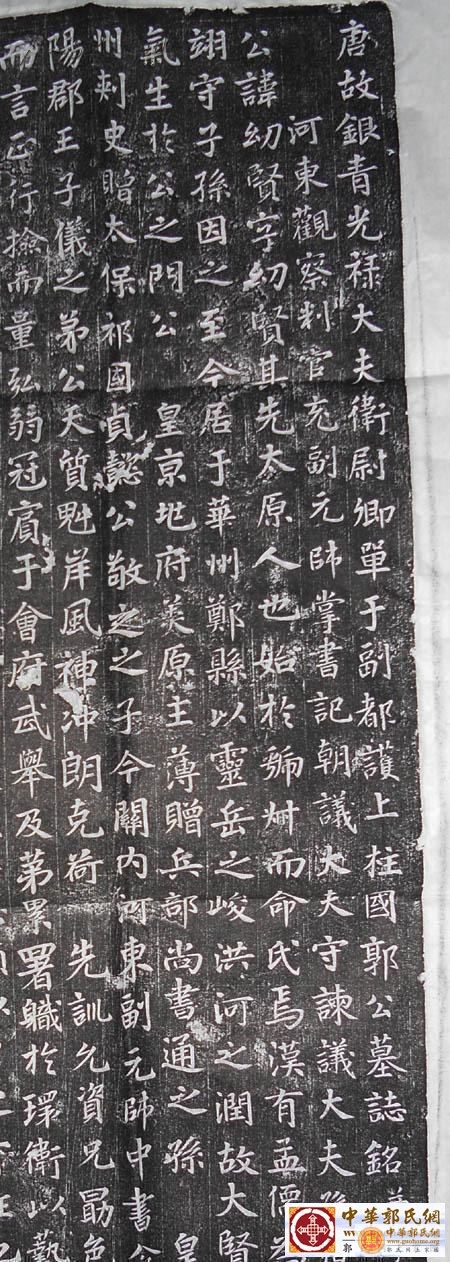 唐故銀青光祿大夫衛尉卿單于副都護上柱國郭公墓誌銘
河東觀察判官充副元帥掌書記朝議大夫守諫議大夫
公諱幼賢字幼賢其先太原人也始於虢州而命氏焉漢有孟儒為
翊守子孫因之至今居于華州鄭縣以靈岳之峻洪河之潤故大賢
氣生於公之門公 皇京兆府美原主薄贈兵部尚書通之孫 皇
州刺史贈太保祁國貞懿公敬之之子今關內河東副元帥中書令
陽郡王子儀之弟公天質魁岸風神沖朗克荷 先訓允資兄勗色
而言正行撿而量弘弱冠賓于會府武舉及第累署職於環衛以勤
中華郭氏網
www.guohome.org